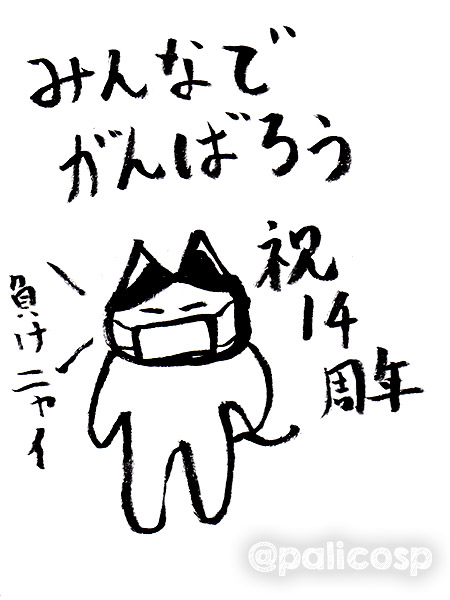 みんなで
がんばろう
祝
14
周年
負けニャイ
@palicosp